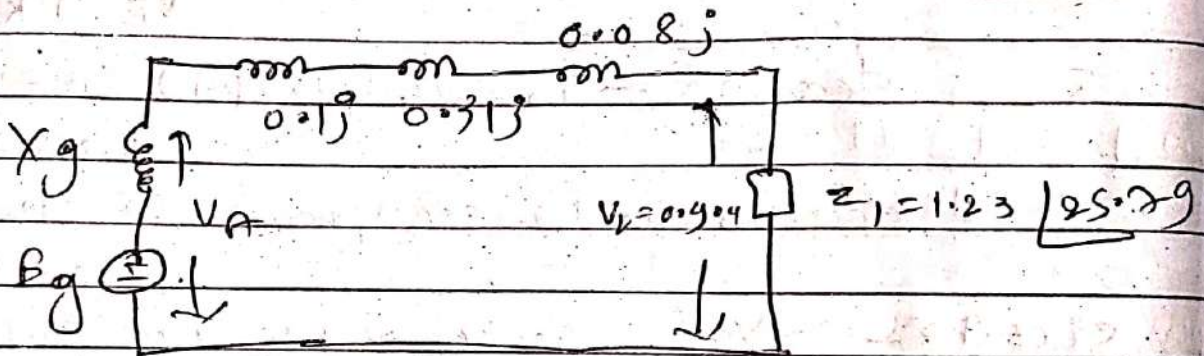 0.08 j
0.1j 0.31j
Xg
VA
VL = 0.904
Z1 = 1.23 ∠25.79
Eg